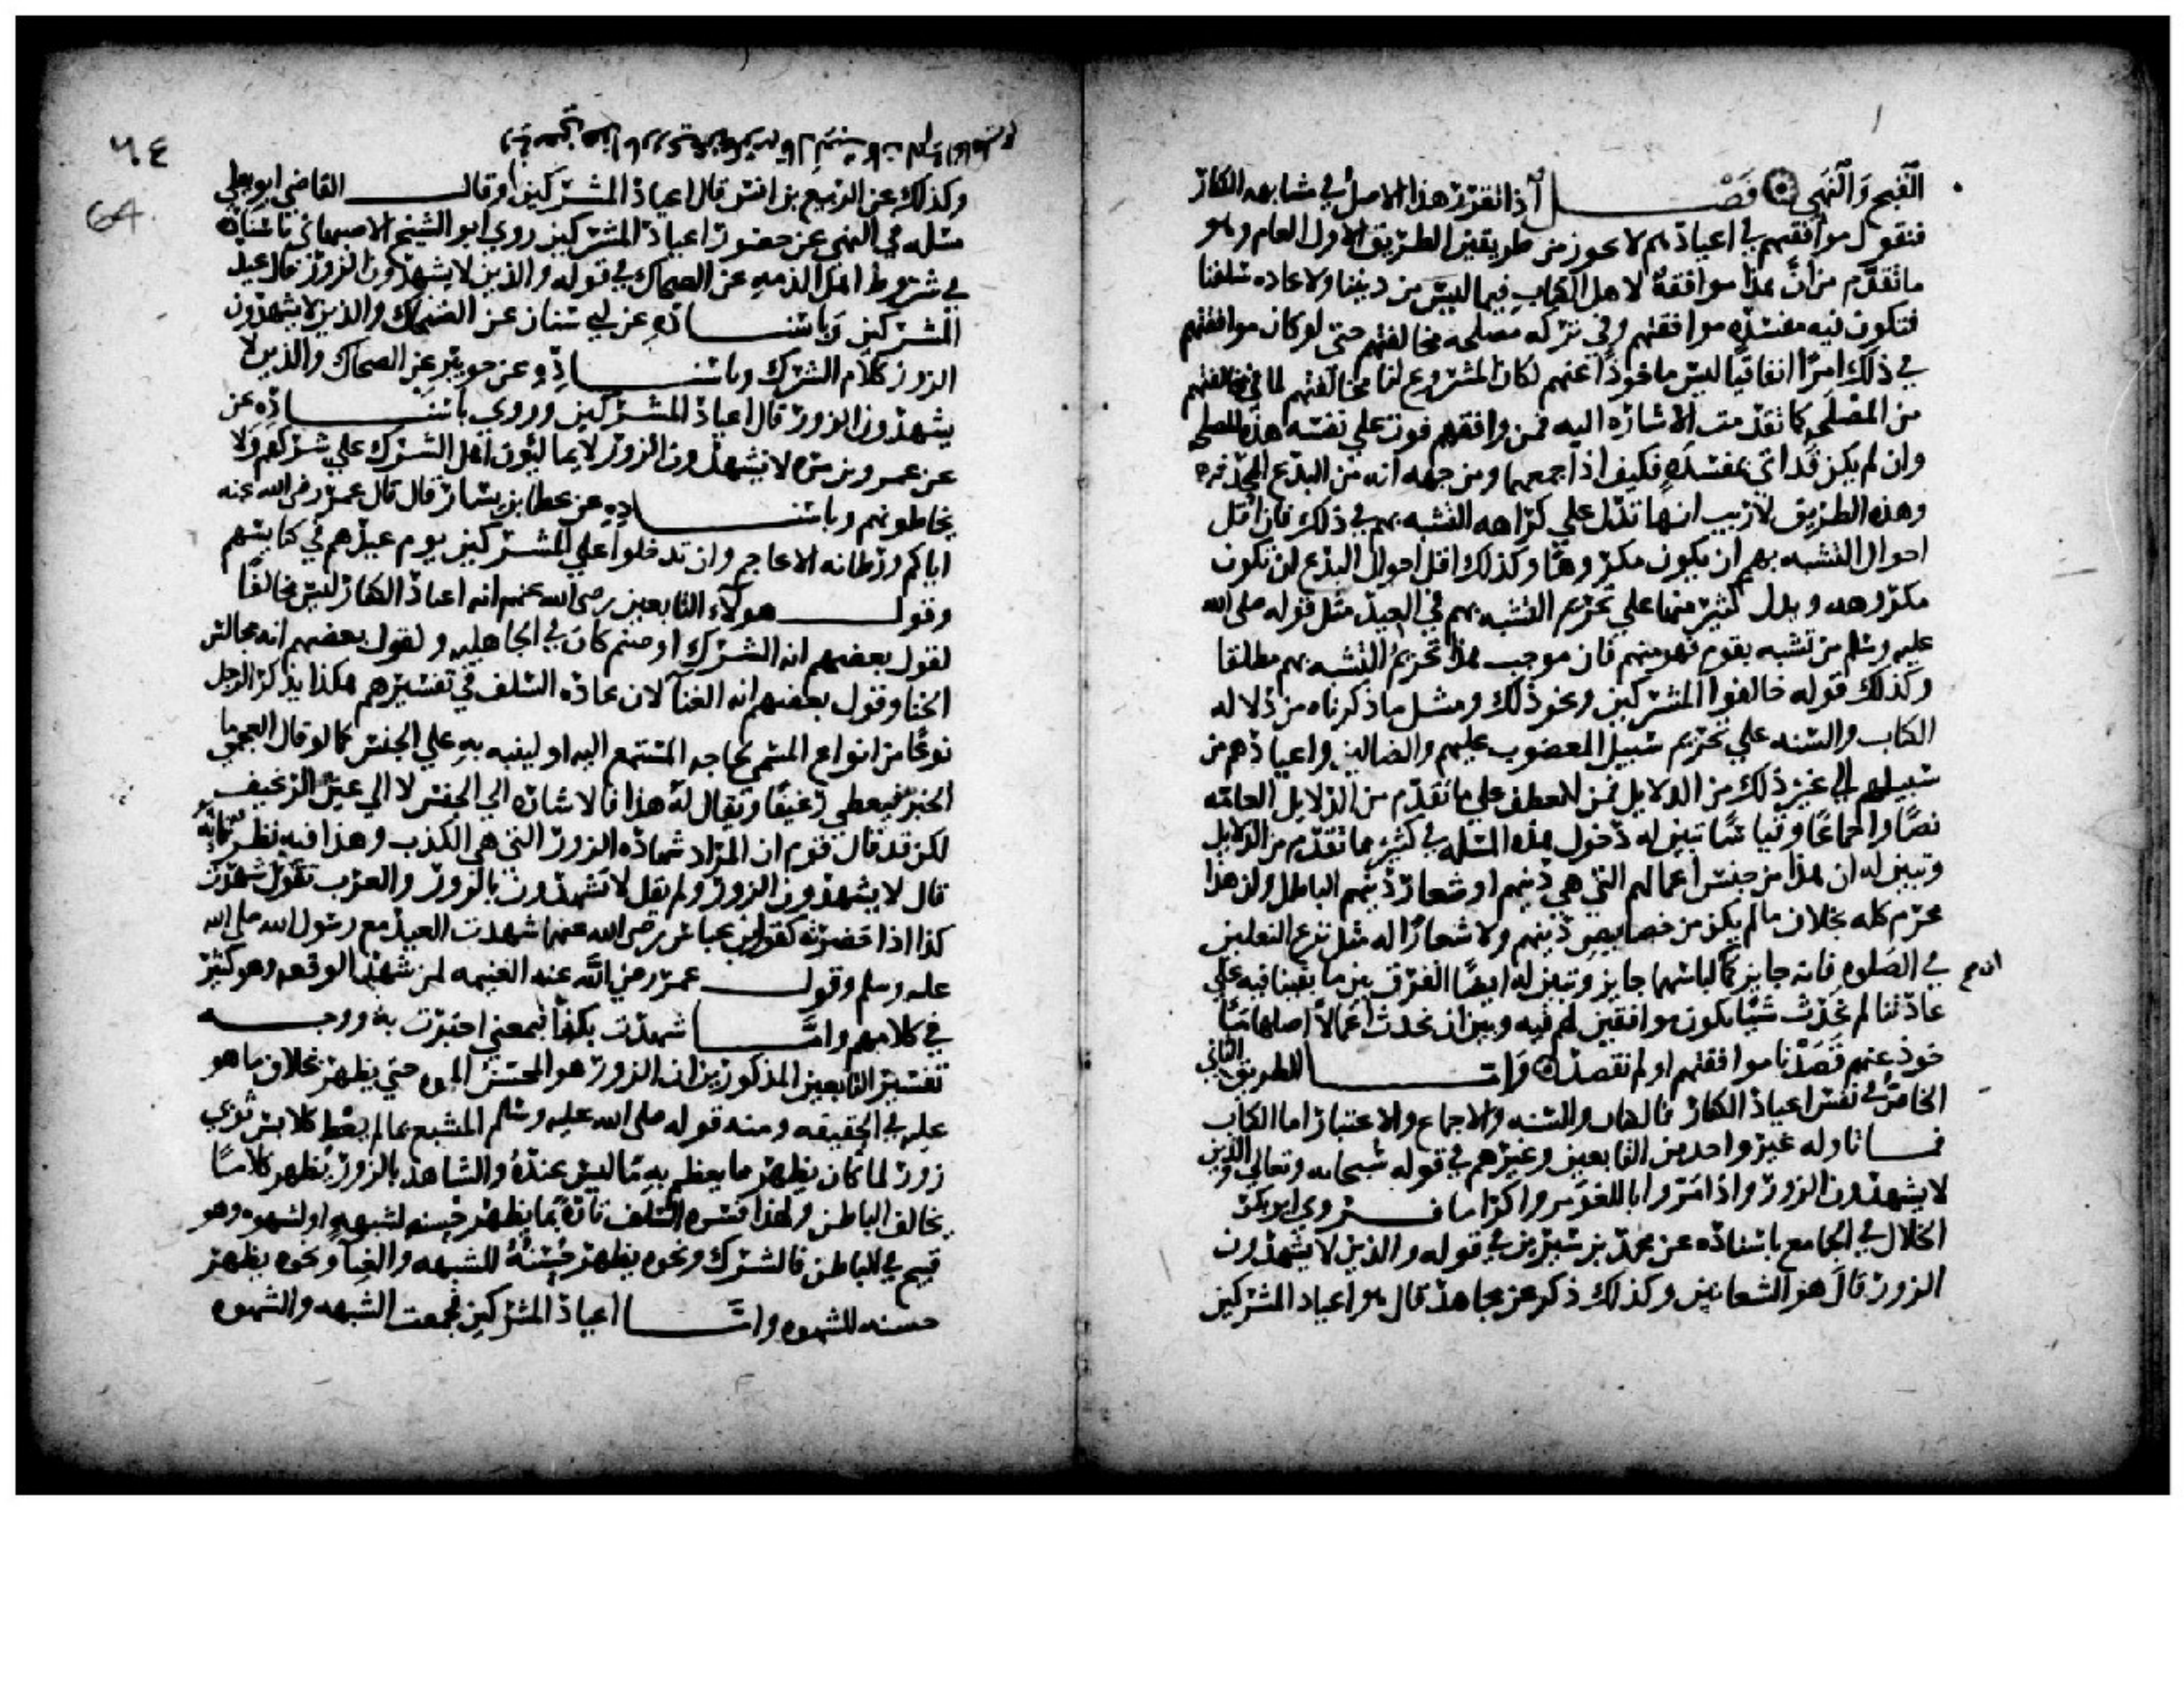 القبح والنهي فصل اذا تقرر هذا الاصل في مشابهه الكفار
فنقول موافقتهم في اعيادهم لا تجوز من طريقين الطريق الاول العام وهو
ما تقدم من ان هذا موافقة لاهل الكتاب فيما ليس من ديننا ولا عاده سلفنا
فتكون فيه مفسده موافقتهم وفي تركه مصلحه مخالفتهم حتى لو كان موافقتهم
في ذلك امرا اتفاقيا ليس ماخوذا عنهم لكان المشروع لنا مخالفتهم لما في مخالفتهم
من المصلحه كما تقدمت الاشاره اليه فمن وافقهم فوت على نفسه هذه المصلحه
وان لم يكن قد اتى بمفسده فكيف اذا جمعهما ومن جهه انه من البدع المحدثه
وهذه الطريق لا ريب انها تدل على كراهه التشبه بهم في ذلك فان اقل
احوال التشبه بهم ان يكون مكروها وكذلك اقل احوال البدع ان تكون
مكروهه ويدل كثير منها على تحريم التشبه بهم في العيد مثل قوله صلى الله
عليه وسلم من تشبه بقوم فهو منهم فان موجب هذا تحريم التشبه بهم مطلقا
وكذلك قوله خالفوا المشركين ونحو ذلك ومثل ما ذكرناه من دلاله
الكتاب والسنه على تحريم سبيل المغضوب عليهم والضالين واعيادهم من
سبيلهم الى غير ذلك من الدلايل فمن انعطف على ما تقدم من الدلايل العامه
نصا واجماعا وقياسا تبين له دخول هذه المسله في كثير مما تقدم من الدلايل
وتبين له ان هذا من جنس اعمالهم التي هي دينهم او شعار دينهم الباطل وان هذا
محرم كله بخلاف ما لم يكن من خصايص دينهم ولا شعارا له مثل نزع النعلين
في الصلوه فانه جايز كما لباسهما جايز وتبين له ايضا الفرق بين ما بقينا فيه على
عادتنا لم نحدث شيا نكون موافقين لهم فيه وبين ان نحدث اعمالا اصلها مـا
خوذ عنهم قصدنا موافقتهم او لم نقصد وامـا الطريق الثاني
الخاص في نفس اعياد الكفار فالكتاب والسنه والاجماع والاعتبار اما الكتاب
فمـا تاوله غير واحد من التابعين وغيرهم في قوله سبحانه وتعالى والذين
لا يشهدون الزور واذا مروا باللغو مروا كراما فـروى ابو بكر
الخلال في الجامع باسناده عن محمد بن سيرين في قوله والذين لا يشهدون
الزور قال هو الشعانين وكذلك ذكر عن مجاهد قال هو اعياد المشركين
٦٤
64
وكذلك عن الربيع بن انس قال اعياد المشركين وقال القاضي ابو يعلي
مسله في النهي عن حضور اعياد المشركين روي ابو الشيخ الاصبهاني باسناده
في شروط اهل الذمه عن الضحاك في قوله والذين لا يشهدون الزور قال عيد
المشركين وباسنـاده عن ابي سنان عن الضحاك والذين لا يشهدون
الزور كلام الشرك وباسنـاده عن جويبر عن الضحاك والذين لا
يشهدون الزور قال اعياد المشركين وروي باسنـاده عن
عن عمرو بن مره لا يشهدون الزور لا يمالئون اهل الشرك على شركهم ولا
يخالطونهم وباسنـاده عن عطا بن يسار قال قال عمر رضي الله عنه
اياكم ورطانه الاعاجم وان تدخلوا على المشركين يوم عيدهم في كنايسهم
وقول هولاء التابعين رضي الله عنهم انه اعياد الكفار ليس مخالفا
لقول بعضهم انه الشرك او صنم كان في الجاهليه ولقول بعضهم انه مجالس
الخنا وقول بعضهم انه الغنا لان عاده السلف في تفسيرهم هكذا يذكر الرجل
نوعا من انواع المسمى لحاجه المستمع اليه او لينبه به على الجنس كما لو قال العجمي ما
الخبز فيعطى رغيفا ويقال له هذا فالاشاره الى الجنس لا الى عين الرغيف
لكن قد قال قوم ان المراد شهاده الزور التي هي الكذب وهذا فيه نظر فانه
قال لا يشهدون الزور ولم يقل لا يشهدون بالزور والعرب تقول شهدت
كذا اذا حضرته كقول ابن عباس رضي الله عنهما شهدت العيد مع رسول الله صلى الله
عليه وسلم وقول عمر رضي الله عنه الغنيمه لمن شهد الوقعه وهو كثير
في كلامهم وامـا شهدت بكذا فبمعنى اخبرت به ووجـه
تفسير التابعين المذكورين ان الزور هو المحسن المموه حتى يظهر بخلاف ما هو
عليه في الحقيقه ومنه قوله صلى الله عليه وسلم المتشبع بما لم يعط كلابس ثوبي
زور لما كان يظهر ما يعظم به مما ليس عنده والشاهد بالزور يظهر كلاما
يخالف الباطن ولهذا فسره السلف تارة بما يظهر حسنه لشبهه او لشهوه وهو
قبيح في الباطن فالشرك ونحوه يظهر حسنه للشبهه والغنا ونحوه يظهر
حسنه للشهوه وامـا اعياد المشركين فجمعت الشبهه والشهوه